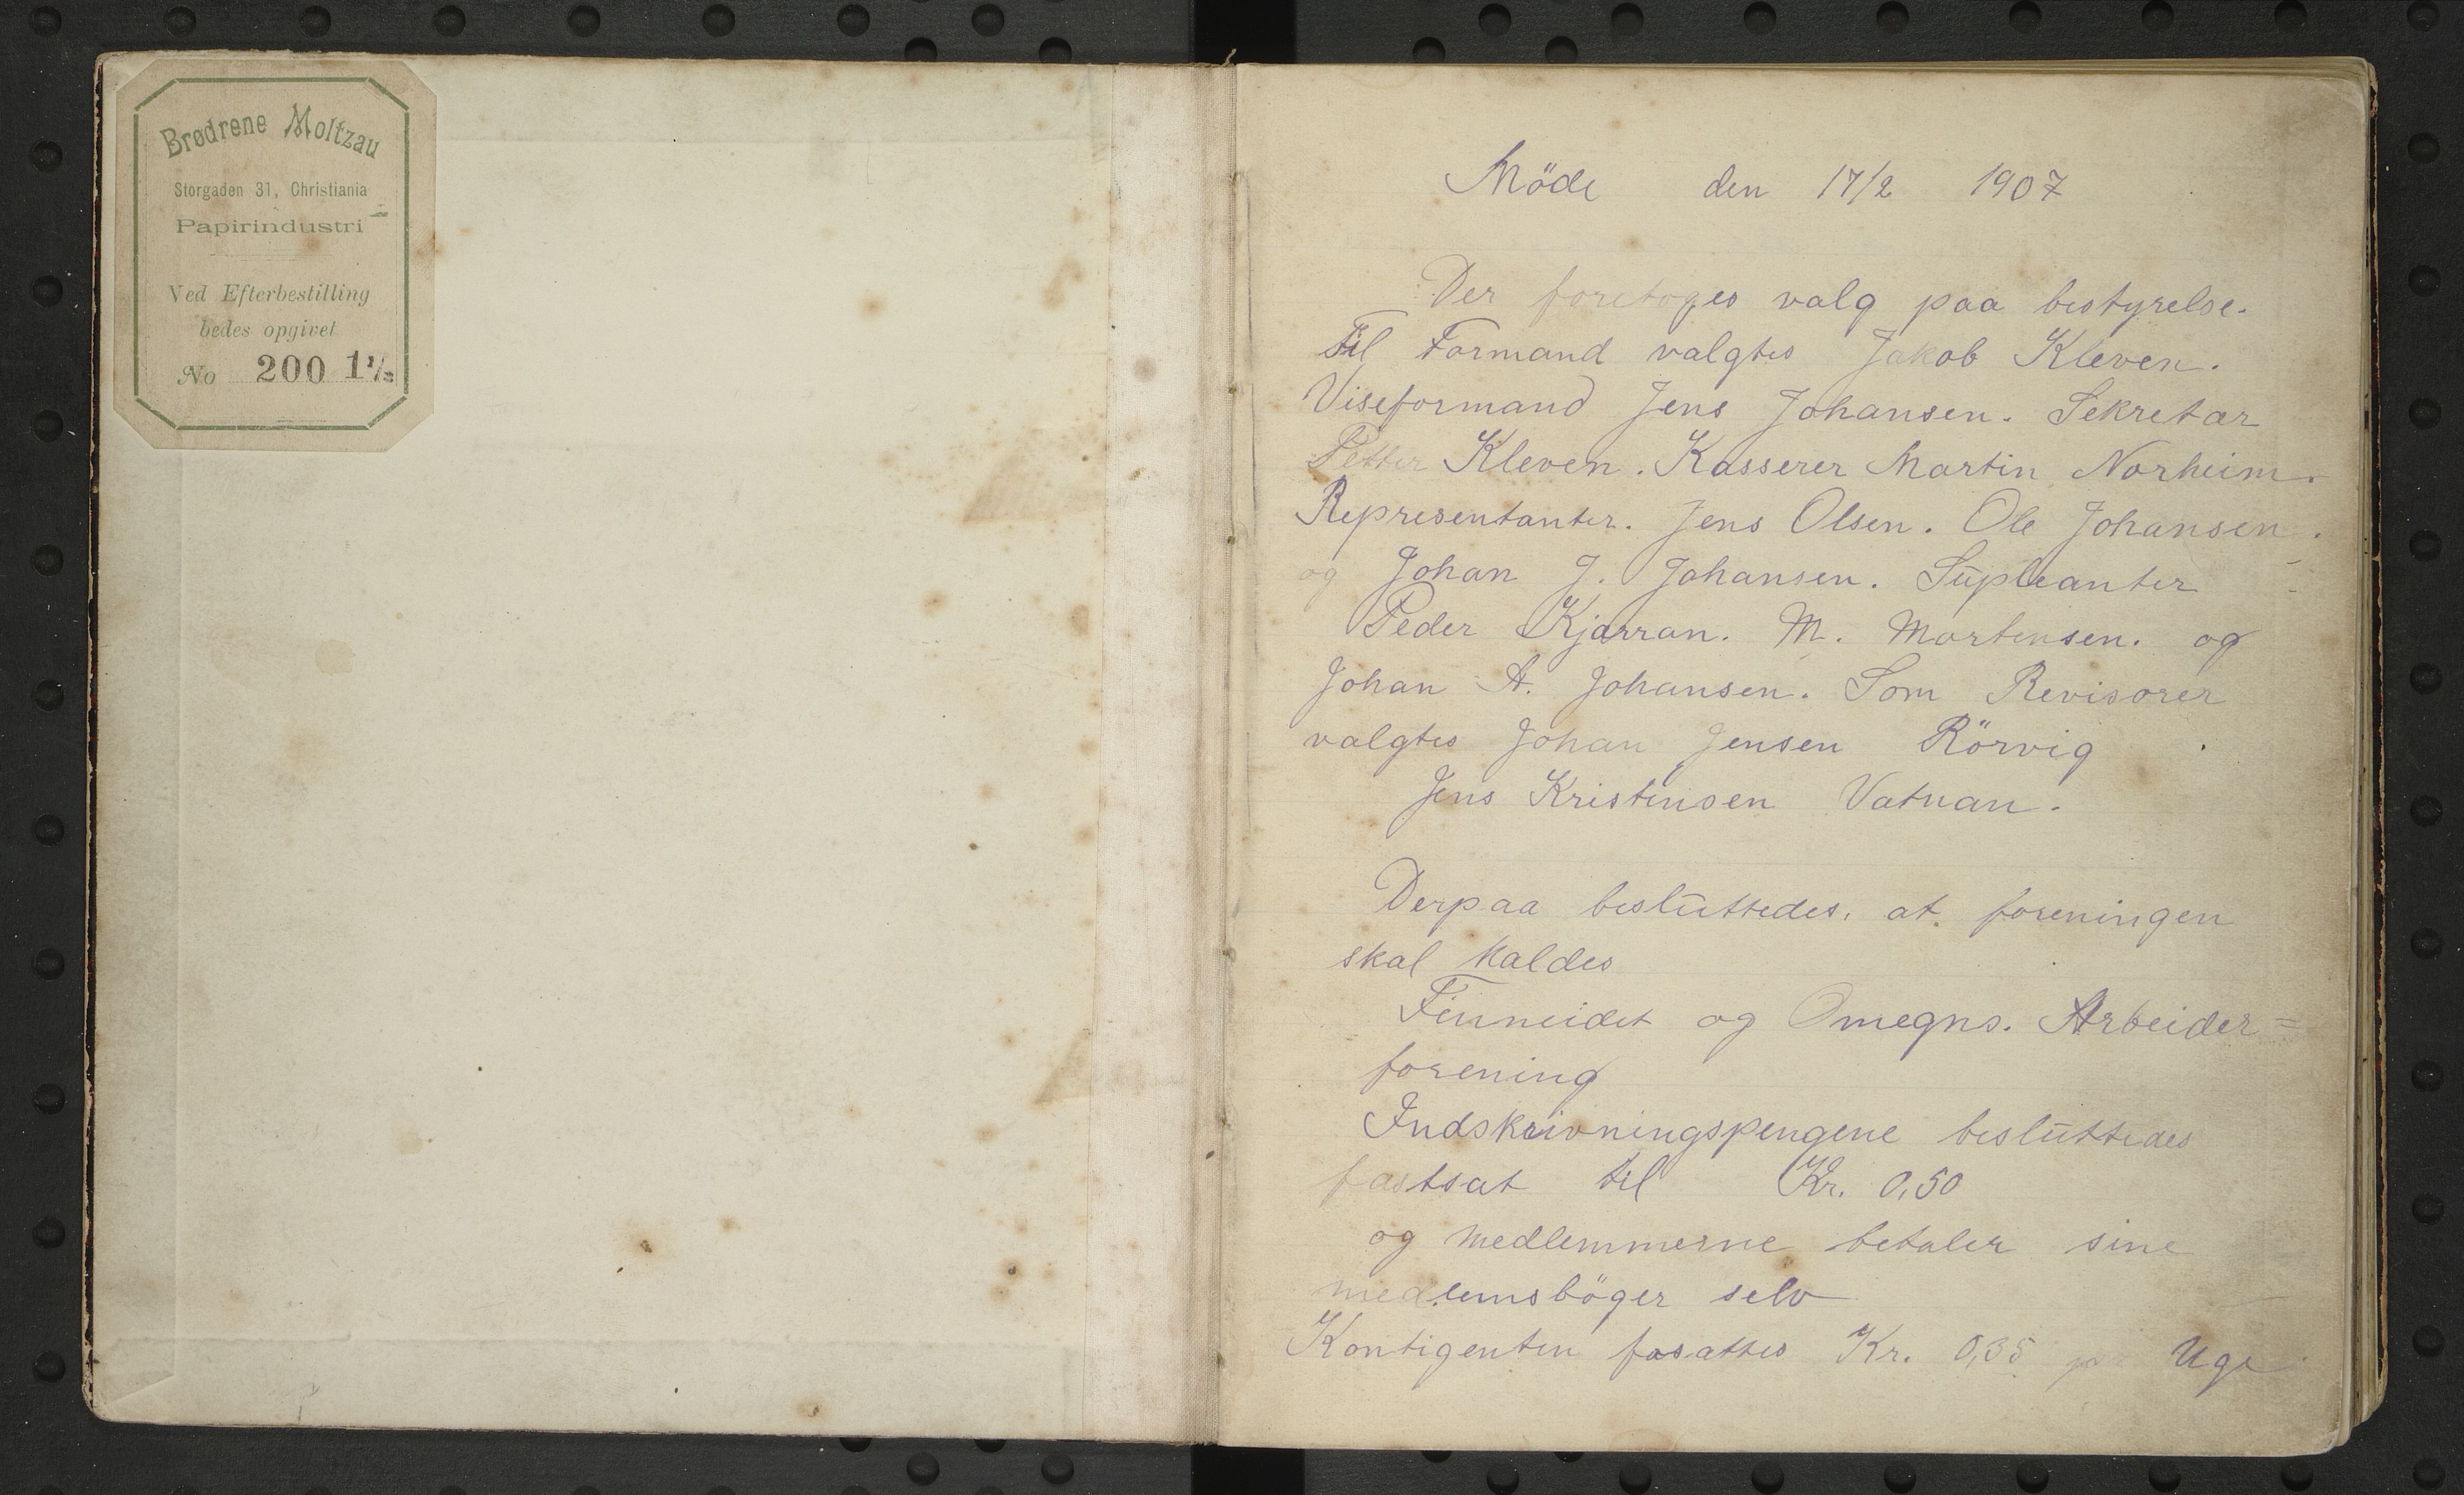 Brødrene Moltzau
Storgaden 31, Christiania
Papirindustri
Ved Efterbestilling
bedes opgivet
No 200 1 1/2
Möde den 17/2 1907
Der foretoges valg paa bestyrelse.
Til Formand valgtes Jakob Kleven.
Viseformand Jens Johansen. Sekretar
Petter Kleven. Kasserer Martin Norheim.
Representanter. Jens Olsen. Ole Johansen.
og Johan J. Johansen. Supleanter
Peder Kjarran. M. Mortensen. og
Johan A. Johansen. Som Revisorer
valgtes Johan Jensen Rörvig
Jens Kristensen Vatnan.
Derpaa besluttedes, at foreningen
skal kaldes
Finneidet og Omegns. Arbeider=
forening
Indskrivningspengene besluttedes
fastsat til Kr. 0,50
og medlemmerne betaler sine
medlemsböger selv
Kontigenten fasattes Kr. 0,35 pr Uge